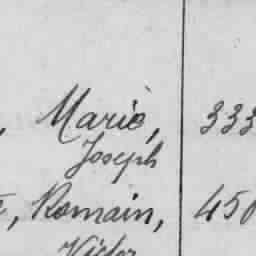 , Marie, 333
Joseph
, Romain, 450
Victor